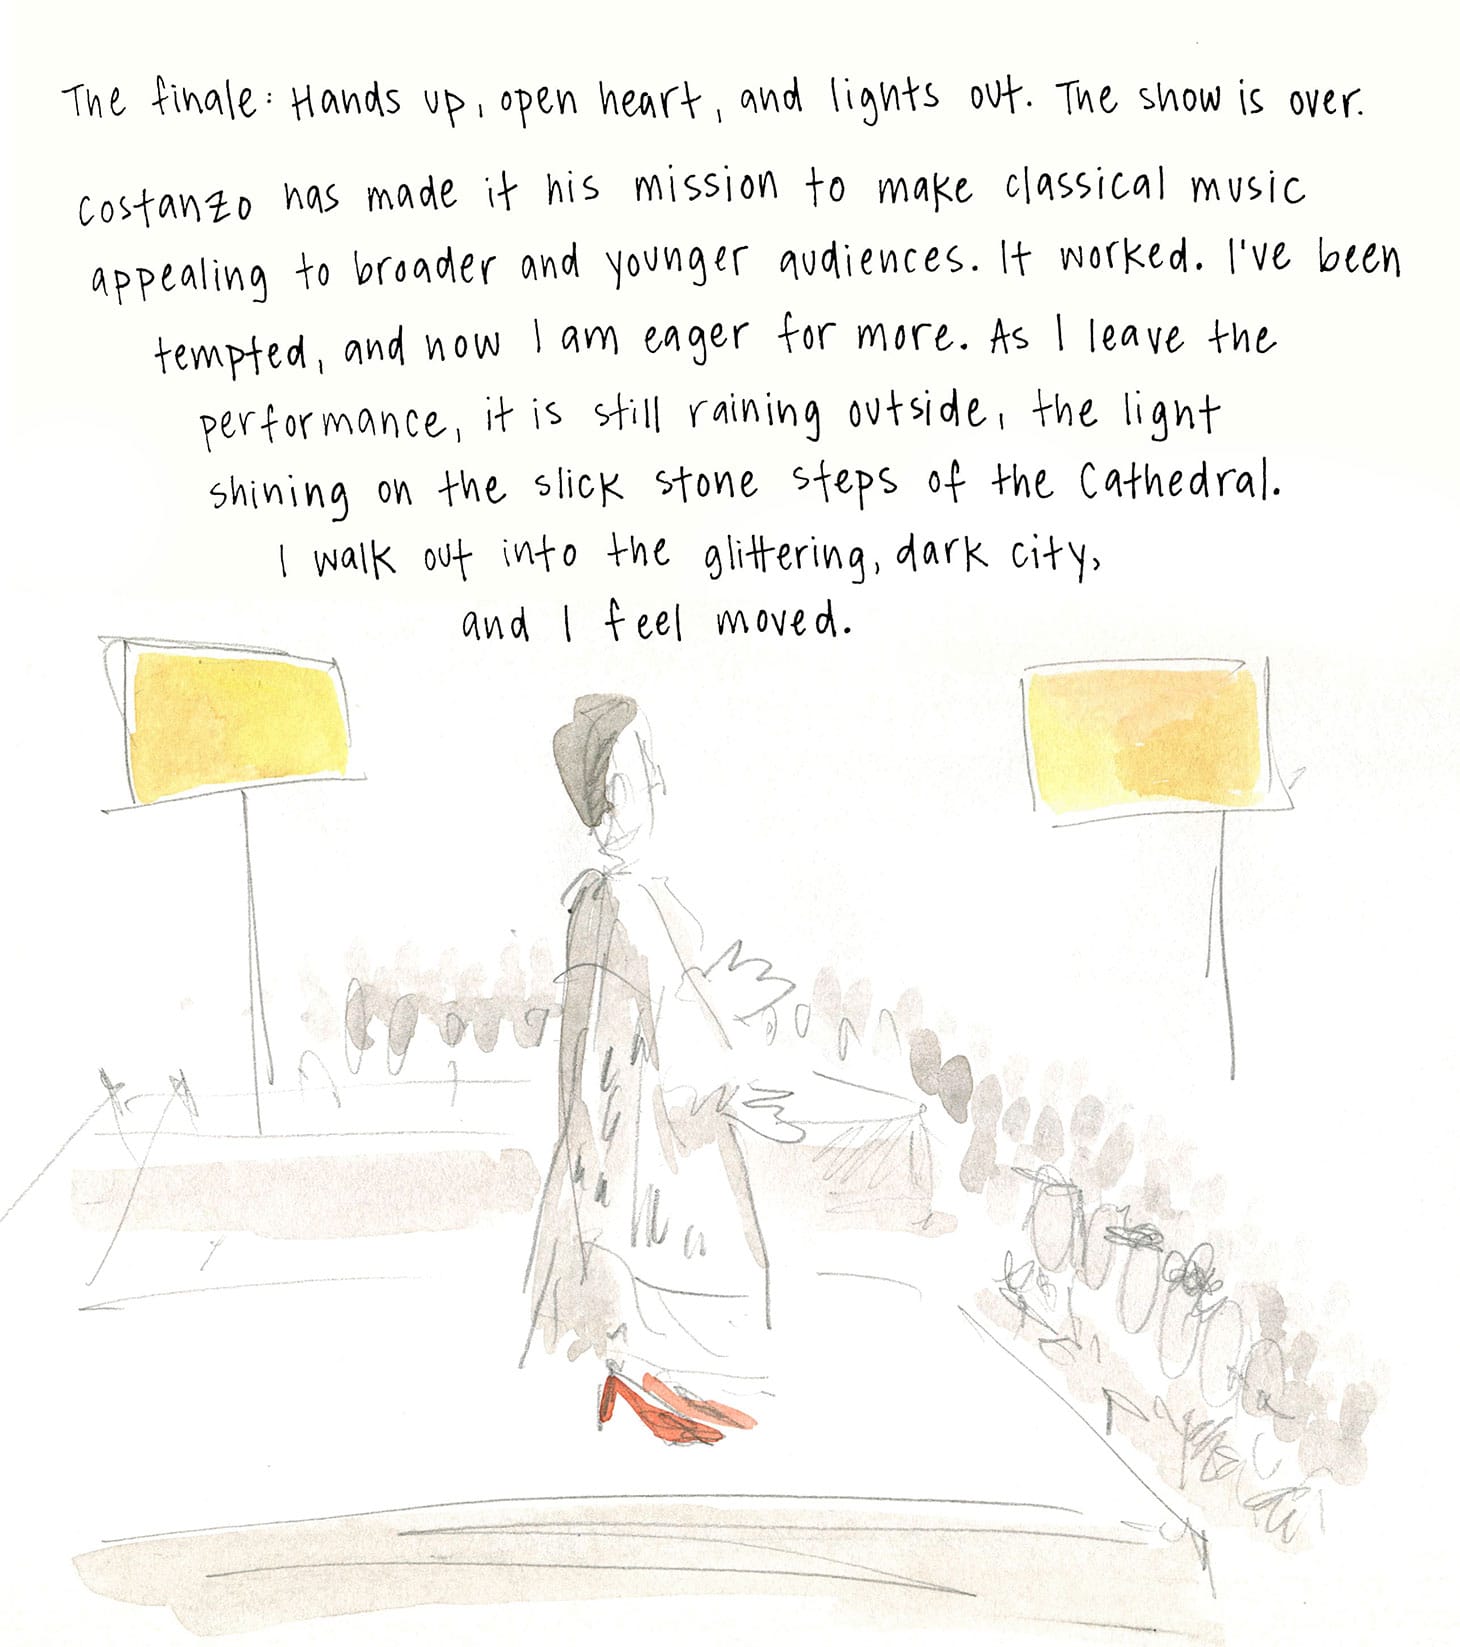 The finale: Hands up, open heart, and lights out. The show is over.
Costanzo has made it his mission to make classical music
appealing to broader and younger audiences. It worked. I've been
tempted, and now I am eager for more. As I leave the
performance, it is still raining outside, the light
shining on the slick stone steps of the Cathedral.
I walk out into the glittering, dark city,
and I feel moved.